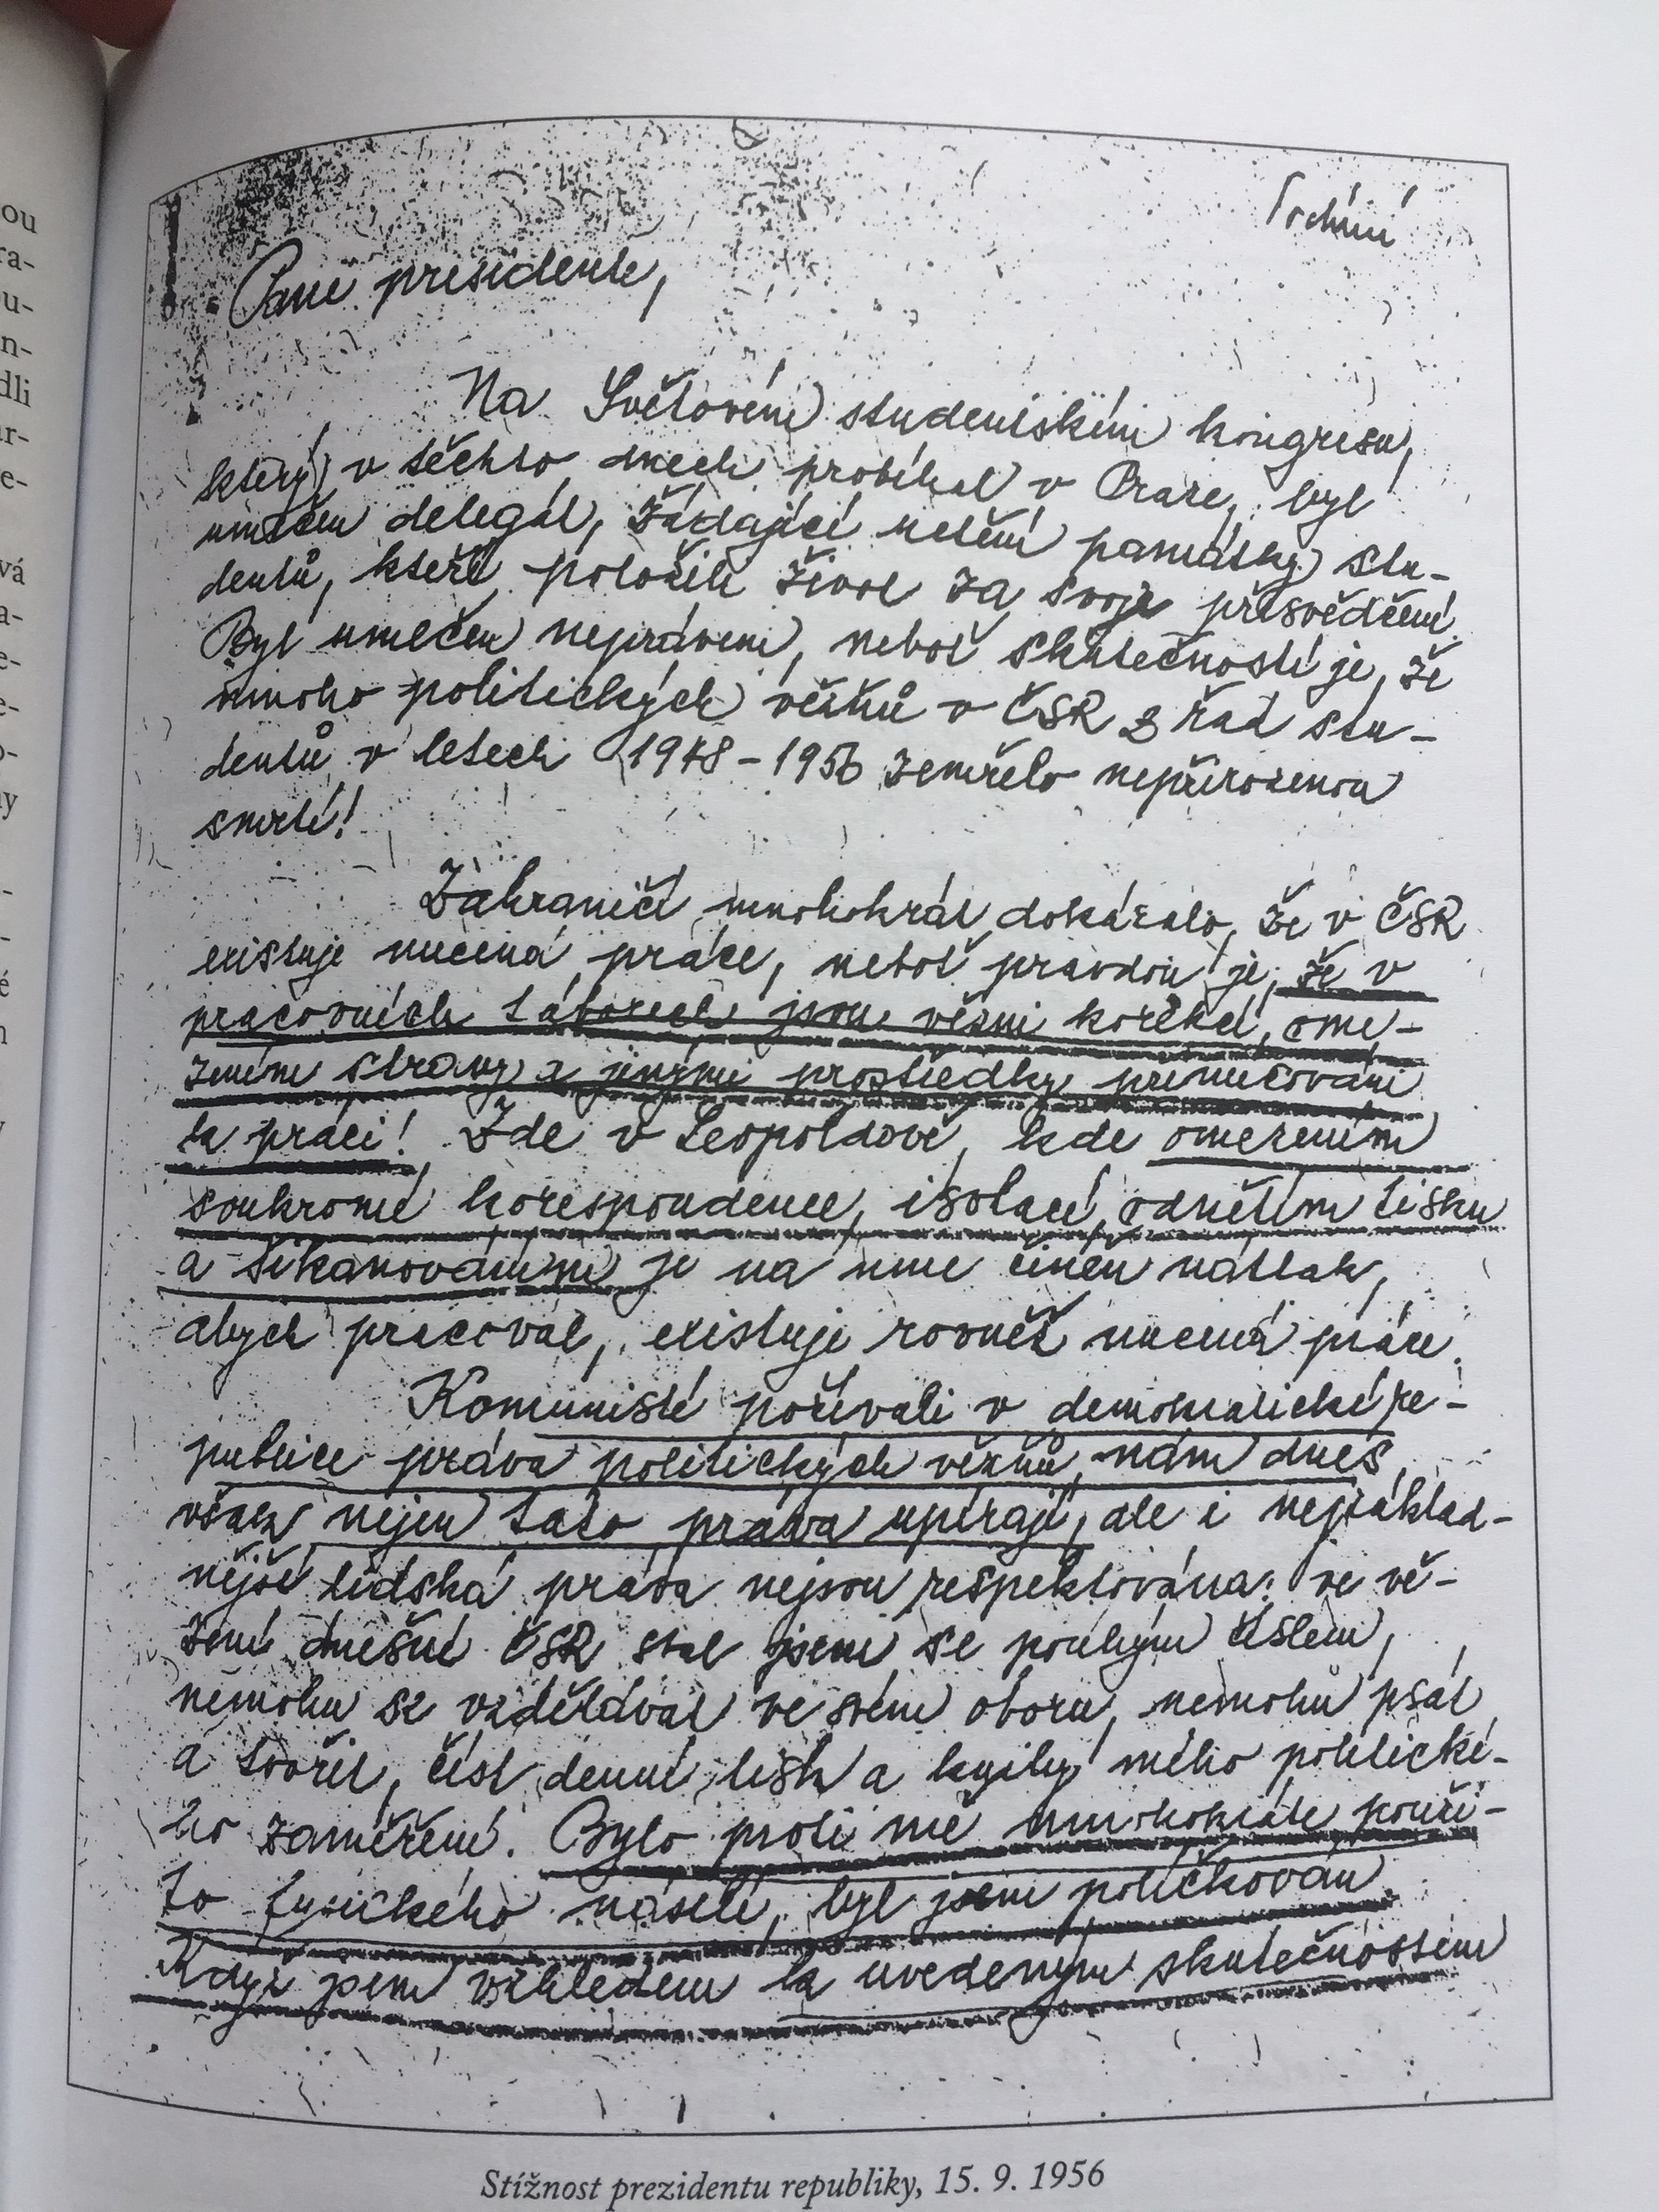 ou
ra-
ou-
n-
dli
ur-
e-
vá
a-
e-
e-
o-
ny
-
-
é
n
y
Pane presidente,
Na Světovém studentském kongresu,
který v těchto dnech probíhal v Praze, byl
umlčen delegát, žádající uctění památky stu-
dentů, kteří položili život za svoje přesvědčení.
Byl umlčen neprávem, neboť skutečností je, že
mnoho politických vězňů v ČSR z řad stu-
dentů v letech 1948-1956 zemřelo nepřirozenou
smrtí!
Zahraničí mnohokrát dokázalo, že v ČSR
existuje nucená práce, neboť pravdou je, že v
pracovních táborech jsou vězni korekcí, ome-
zením stravy a jinými prostředky přinucováni
k práci! Zde v Leopoldově, kde omezením
soukromé korespondence, isolací, odnětím tisku
a šikanováním je na mne činěn nátlak,
abych pracoval, existuje rovněž nucená práce.
Komunisté požívali v demokratické re-
publice práva politických vězňů, nám dnes
však nejen tato práva upírají, ale i nejzáklad-
nější lidská práva nejsou respektována: ve vě-
zení dnešní ČSR stal jsem se pouhým číslem,
nemohu se vzdělávat ve svém oboru, nemohu psát
a tvořit, číst denní tisk a knihy mého politické-
ho zaměření. Bylo proti mě mnohokráte použi-
to fysického násilí, byl jsem políčkován.
Když jsem vzhledem k uvedeným skutečnostem
Stížnost prezidentu republiky, 15. 9. 1956